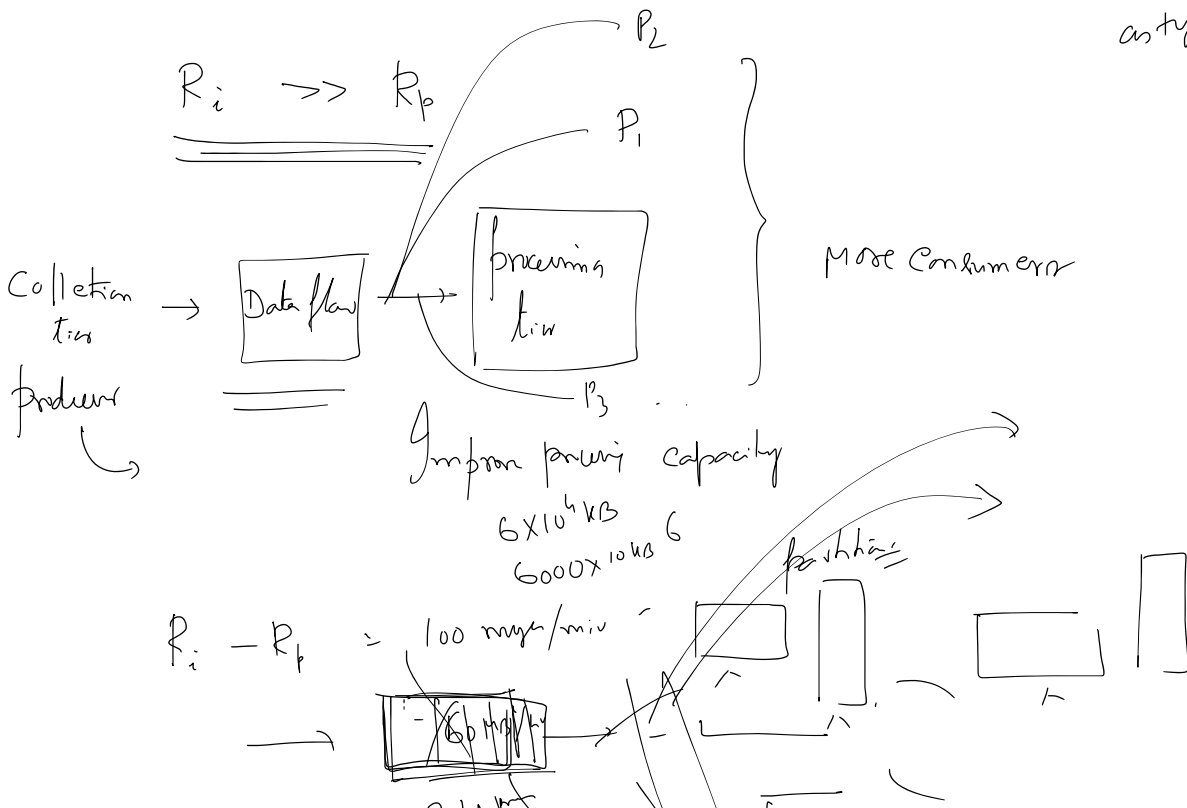 P2
Ri >> Rp
P1
Colletion
tier
Data flow
processing
tier
More Consumers
producer
P3
Improve processing capacity
6X10⁴ KB
6000X10 KB 6
partitions
Ri - Rp = 100 msgs/min
60 MB/hr